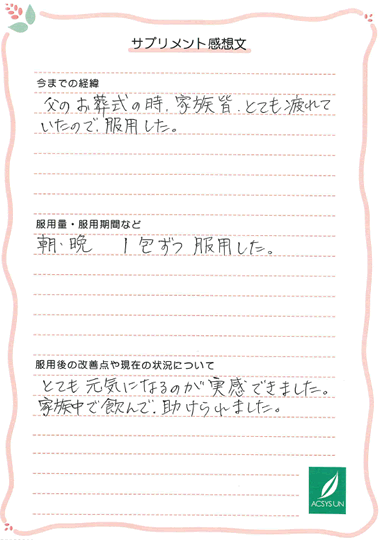 サプリメント感想文
今までの経緯
父のお葬式の時、家族皆、とても疲れて
いたので、服用した。
服用量・服用期間など
朝・晩　1包ずつ服用した。
服用後の改善点や現在の状況について
とても元気になるのが実感できました。
家族中で飲んで、助けられました。
ACSYS UN